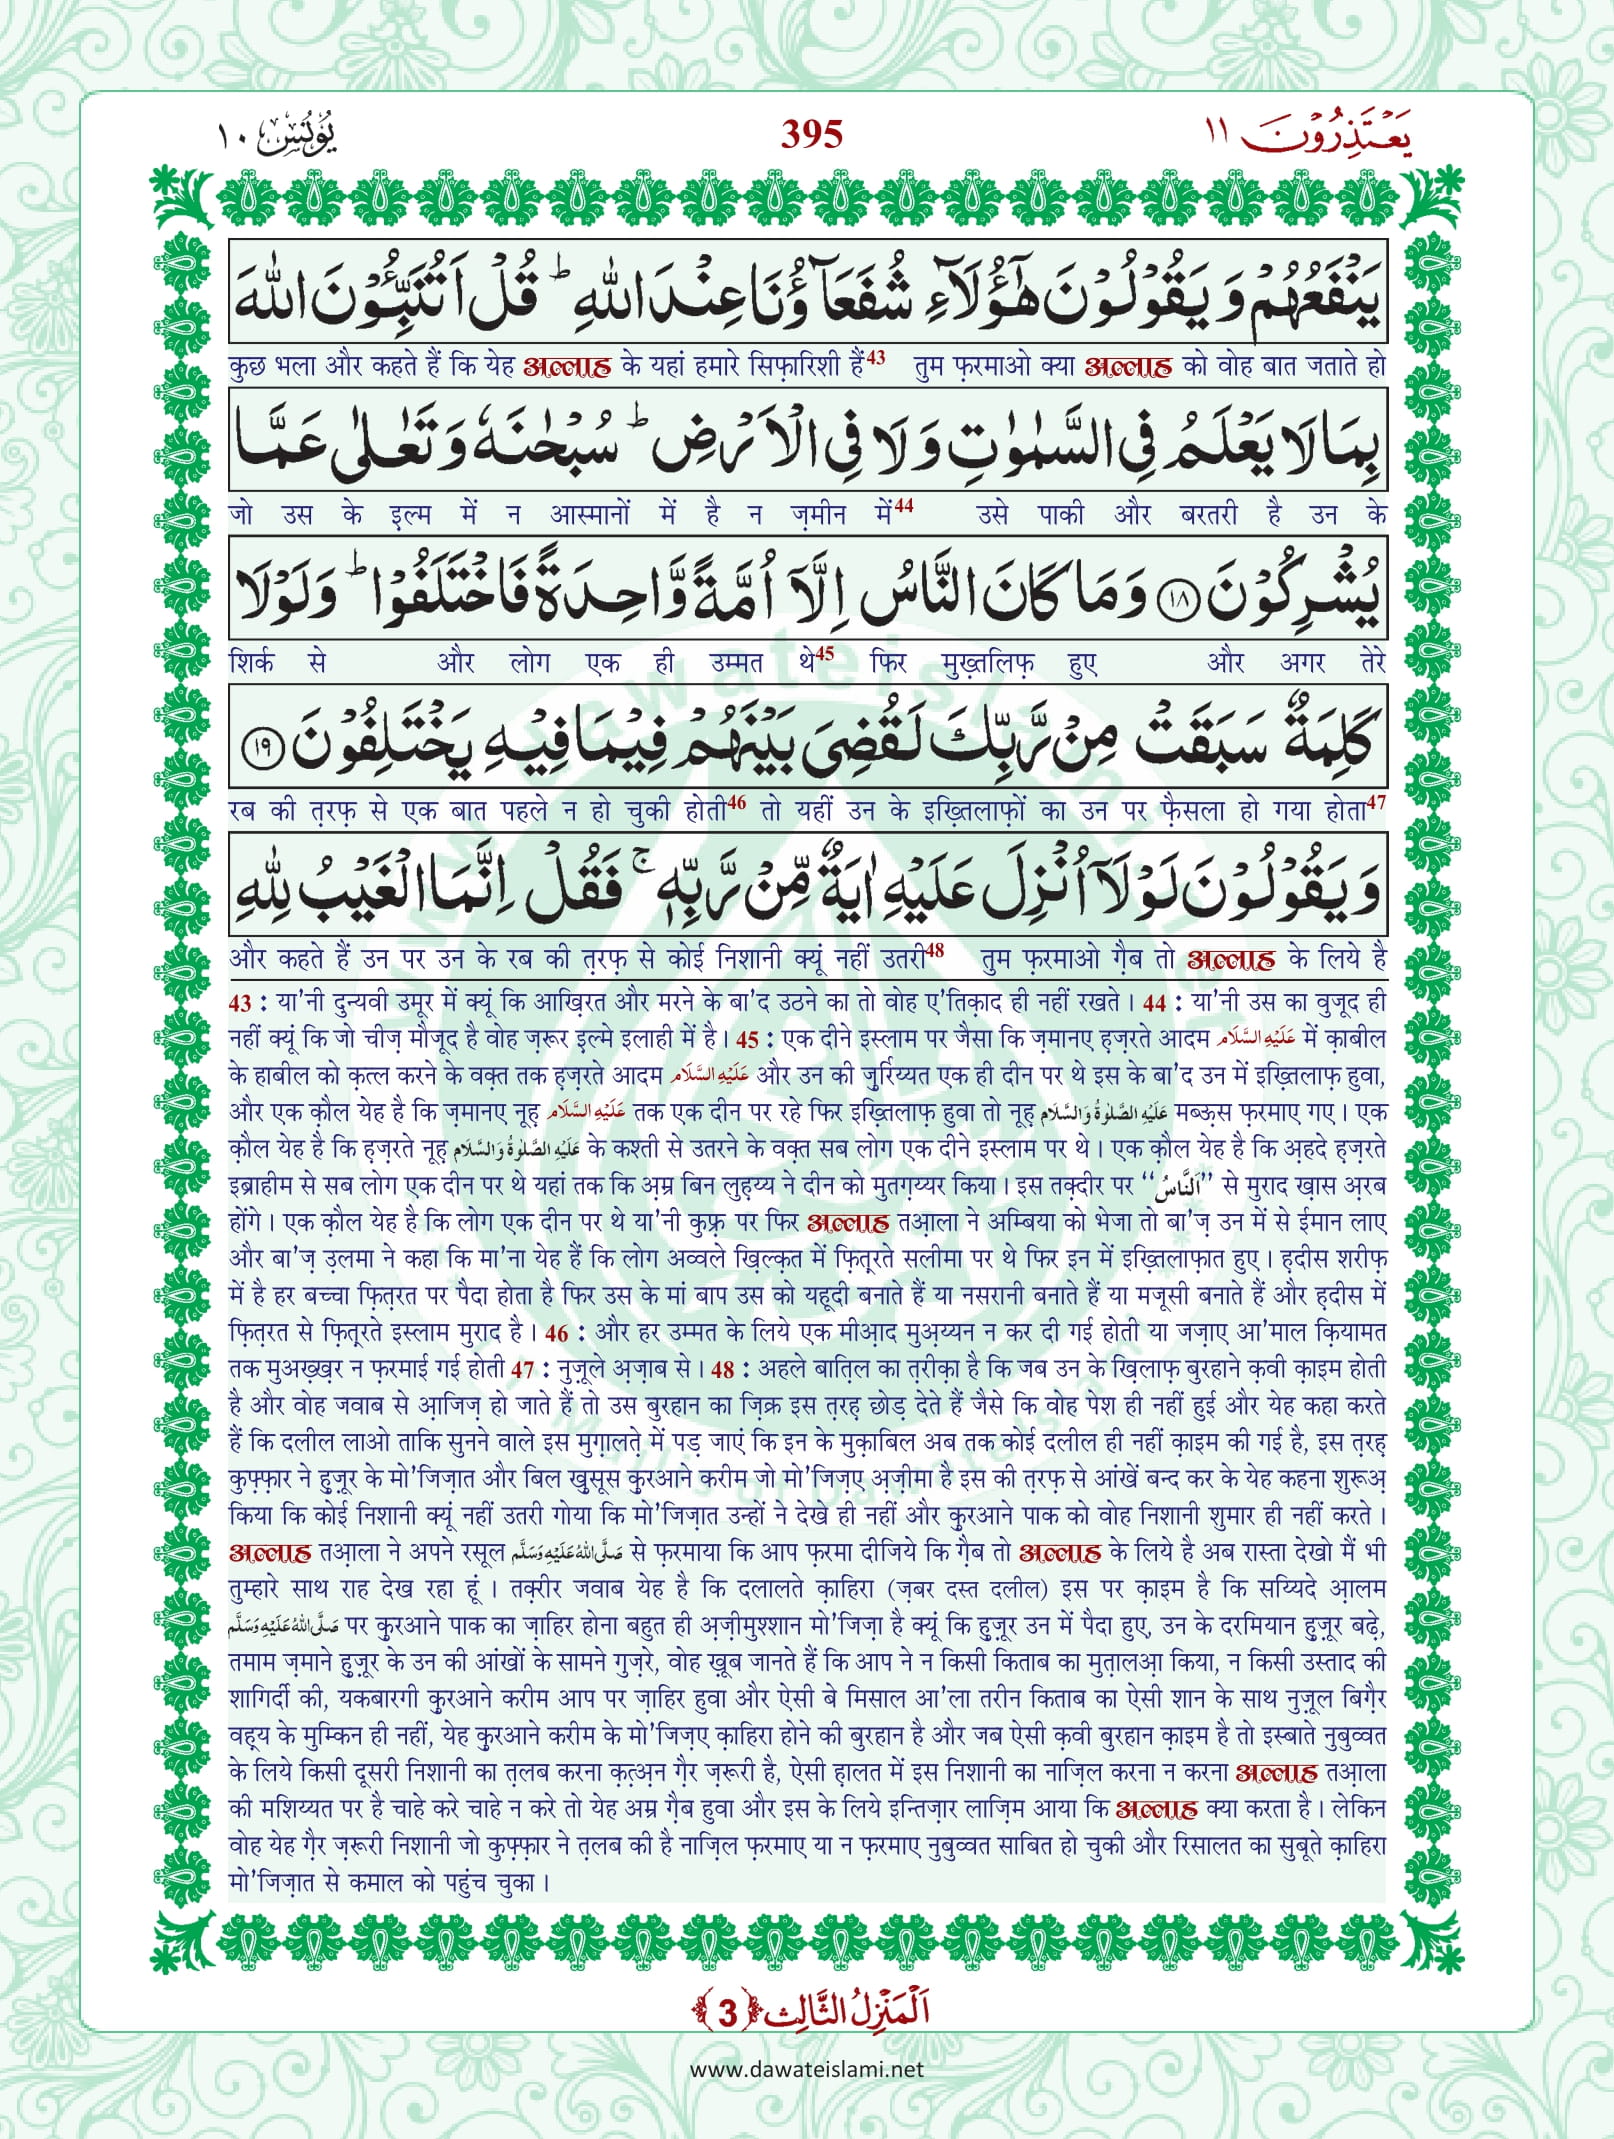 يَعۡتَذِرُوۡنَ ١١
395
يُوۡنُس ١٠
يَنۡفَعُهُمۡ وَ يَقُوۡلُوۡنَ هٰۤؤُلَآءِ شُفَعَآؤُنَا عِنۡدَ اللّٰهِ ؕ قُلۡ اَتُنَبِّـُٔوۡنَ اللّٰهَ
कुछ भला और कहते हैं कि येह अल्लाह के यहां हमारे सिफ़ारिशी हैं43 तुम फ़रमाओ क्या अल्लाह को वोह बात जताते हो
بِمَا لَا يَعۡلَمُ فِي السَّمٰوٰتِ وَ لَا فِي الۡاَرۡضِ ؕ سُبۡحٰنَهٗ وَ تَعٰلٰى عَمَّا
जो उस के इल्म में न आस्मानों में है न ज़मीन में44 उसे पाकी और बरतरी है उन के
يُشۡرِكُوۡنَ ﴿١٨﴾ وَ مَا كَانَ النَّاسُ اِلَّاۤ اُمَّةً وَّاحِدَةً فَاخۡتَلَفُوۡا ؕ وَلَوۡلَا
शिर्क से और लोग एक ही उम्मत थे45 फिर मुख़्तलिफ़ हुए और अगर तेरे
كَلِمَةٌ سَبَقَتۡ مِنۡ رَّبِّكَ لَقُضِيَ بَيۡنَهُمۡ فِيۡمَا فِيۡهِ يَخۡتَلِفُوۡنَ ﴿١٩﴾
रब की त़रफ़ से एक बात पहले न हो चुकी होती46 तो यहीं उन के इख़्तिलाफ़ों का उन पर फ़ैसला हो गया होता47
وَ يَقُوۡلُوۡنَ لَوۡلَاۤ اُنۡزِلَ عَلَيۡهِ اٰيَةٌ مِّنۡ رَّبِّهٖ ۚ فَقُلۡ اِنَّمَا الۡغَيۡبُ لِلّٰهِ
और कहते हैं उन पर उन के रब की त़रफ़ से कोई निशानी क्यूं नहीं उतरी48 तुम फ़रमाओ ग़ैब तो अल्लाह के लिये है
43 : या'नी दुन्यवी उमूर में क्यूं कि आख़िरत और मरने के बा'द उठने का तो वोह ए'तिक़ाद ही नहीं रखते। 44 : या'नी उस का वुजूद ही
नहीं क्यूं कि जो चीज़ मौजूद है वोह ज़रूर इल्मे इलाही में है। 45 : एक दीने इस्लाम पर जैसा कि ज़मानए ह़ज़रते आदम عَلَيْهِ السَّلَام में क़ाबील
के हाबील को क़त्ल करने के वक़्त तक ह़ज़रते आदम عَلَيْهِ السَّلَام और उन की ज़ुर्रिय्यत एक ही दीन पर थे इस के बा'द उन में इख़्तिलाफ़ हुवा,
और एक क़ौल येह है कि ज़मानए नूह़ عَلَيْهِ السَّلَام तक एक दीन पर रहे फिर इख़्तिलाफ़ हुवा तो नूह़ عَلَيْهِ الصَّلٰوةُ وَالسَّلَام मब्ऊ़स फ़रमाए गए। एक
क़ौल येह है कि ह़ज़रते नूह़ عَلَيْهِ الصَّلٰوةُ وَالسَّلَام के कश्ती से उतरने के वक़्त सब लोग एक दीने इस्लाम पर थे। एक क़ौल येह है कि अ़हदे ह़ज़रते
इब्राहीम से सब लोग एक दीन पर थे यहां तक कि अ़म्र बिन लुह़य्य ने दीन को मुतग़य्यर किया। इस तक़्दीर पर ‘‘اَلنَّاسُ’’ से मुराद ख़ास अ़रब
होंगे। एक क़ौल येह है कि लोग एक दीन पर थे या'नी कुफ़्र पर फिर अल्लाह तआ़ला ने अम्बिया को भेजा तो बा'ज़ उन में से ईमान लाए
और बा'ज़ उ़लमा ने कहा कि मा'ना येह हैं कि लोग अव्वले ख़िल्क़त में फ़ित़्रते सलीमा पर थे फिर इन में इख़्तिलाफ़ात हुए। ह़दीस शरीफ़
में है हर बच्चा फ़ित़रत पर पैदा होता है फिर उस के मां बाप उस को यहूदी बनाते हैं या नसरानी बनाते हैं या मजूसी बनाते हैं और ह़दीस में
फ़ित़रत से फ़ित़्रते इस्लाम मुराद है। 46 : और हर उम्मत के लिये एक मीआ़द मुअ़य्यन न कर दी गई होती या जज़ाए आ'माल क़ियामत
तक मुअख़्ख़र न फ़रमाई गई होती 47 : नुज़ूले अ़ज़ाब से। 48 : अहले बात़िल का त़रीक़ा है कि जब उन के ख़िलाफ़ बुरहाने क़वी क़ाइम होती
है और वोह जवाब से आ़जिज़ हो जाते हैं तो उस बुरहान का ज़िक्र इस त़रह़ छोड़ देते हैं जैसे कि वोह पेश ही नहीं हुई और येह कहा करते
हैं कि दलील लाओ ताकि सुनने वाले इस मुग़ालत़े में पड़ जाएं कि इन के मुक़ाबिल अब तक कोई दलील ही नहीं क़ाइम की गई है, इस त़रह़
कुफ़्फ़ार ने हुज़ूर के मो'जिज़ात और बिल ख़ुसूस क़ुरआने करीम जो मो'जिज़ए अ़ज़ीमा है इस की त़रफ़ से आंखें बन्द कर के येह कहना शुरूअ़
किया कि कोई निशानी क्यूं नहीं उतरी गोया कि मो'जिज़ात उन्हों ने देखे ही नहीं और क़ुरआने पाक को वोह निशानी शुमार ही नहीं करते।
अल्लाह तआ़ला ने अपने रसूल صَلَّى اللّٰهُ عَلَيْهِ وَسَلَّم से फ़रमाया कि आप फ़रमा दीजिये कि ग़ैब तो अल्लाह के लिये है अब रास्ता देखो मैं भी
तुम्हारे साथ राह देख रहा हूं। तक़्रीर जवाब येह है कि दलालते क़ाहिरा (ज़बर दस्त दलील) इस पर क़ाइम है कि सय्यिदे आ़लम
صَلَّى اللّٰهُ عَلَيْهِ وَسَلَّم पर क़ुरआने पाक का ज़ाहिर होना बहुत ही अ़ज़ीमुश्शान मो'जिज़ा है क्यूं कि हुज़ूर उन में पैदा हुए, उन के दरमियान हुज़ूर बढ़े,
तमाम ज़माने हुज़ूर के उन की आंखों के सामने गुज़रे, वोह ख़ूब जानते हैं कि आप ने न किसी किताब का मुत़ालआ़ किया, न किसी उस्ताद की
शागिर्दी की, यकबारगी क़ुरआने करीम आप पर ज़ाहिर हुवा और ऐसी बे मिसाल आ'ला तरीन किताब का ऐसी शान के साथ नुज़ूल बिग़ैर
वह़्य के मुम्किन ही नहीं, येह क़ुरआने करीम के मो'जिज़ए क़ाहिरा होने की बुरहान है और जब ऐसी क़वी बुरहान क़ाइम है तो इस्बाते नुबुव्वत
के लिये किसी दूसरी निशानी का त़लब करना क़त़्अ़न ग़ैर ज़रूरी है, ऐसी ह़ालत में इस निशानी का नाज़िल करना न करना अल्लाह तआ़ला
की मशिय्यत पर है चाहे करे चाहे न करे तो येह अम्र ग़ैब हुवा और इस के लिये इन्तिज़ार लाज़िम आया कि अल्लाह क्या करता है। लेकिन
वोह येह ग़ैर ज़रूरी निशानी जो कुफ़्फ़ार ने त़लब की है नाज़िल फ़रमाए या न फ़रमाए नुबुव्वत साबित हो चुकी और रिसालत का सुबूते क़ाहिरा
मो'जिज़ात से कमाल को पहुंच चुका।
اَلۡمَنۡزِلُ الثَّالِث ﴿3﴾
www.dawateislami.net